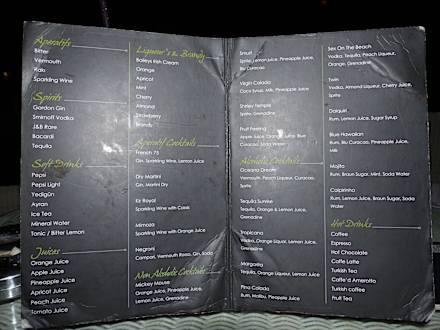 Aperatifs
Bitter
Vermouth
Raki
Sparkling Wine
Spirits
Gordon Gin
Smirnoff Vodka
J&B Rare
Bacardi
Tequila
Soft Drinks
Pepsi
Pepsi Light
Yedigün
Ayran
Ice Tea
Mineral Water
Tonic / Bitter Lemon
Juices
Orange Juice
Apple Juice
Pineapple Juice
Apricot Juice
Peach Juice
Tomato Juice
Liqueur's & Brandy
Baileys Irish Cream
Orange
Apricot
Mint
Cherry
Almond
Strawberry
Brandy
Aperatif Cocktails
French 75
Gin, Sparkling Wine, Lemon Juice
Dry Martini
Gin, Martini Dry
Kir Royal
Sparkling Wine with Cassis
Mimosa
Sparkling Wine with Orange Juice
Negroni
Campari, Vermouth Rosso, Gin, Soda
Non Alcholic Cocktails
Mickey Mouse
Orange Juice, Pineapple Juice,
Lemon Juice, Grenadine
Smurf
Sprite, Lemon Juice, Pineapple Juice,
Blu Curacao
Virgin Colada
Coco Syrup, Milk, Pineapple Juice
Shirley Temple
Sprite, Grenadine
Fruit Feeling
Apple Juice, Orange Juice, Blue
Curacao, Grenadine
Alcholic Cocktails
Oceana Dream
Vermouth, Peach Liqueur, Curacao,
Sprite
Tequila Sunrise
Tequila, Orange & Lemon Juice,
Grenadine
Tropicana
Vodka, Orange Liquor, Lemon Juice,
Orange Juice, Grenadine
Margarita
Tequila, Orange Liqueur, Lemon Juice
Pina Colada
Rum, Malibu, Pineapple Juice
Sex On The Beach
Vodka, Tequila, Peach Liqueur,
Orange, Grenadine
Twin
Vodka, Almond Liqueur, Cherry Juice,
Sprite
Daiquiri
Rum, Lemon Juice, Sugar Syrup
Blue Hawaiian
Rum, Blu Curacao, Pineapple Juice,
Lemon Juice
Mojito
Rum, Braun Sugar, Mint, Soda Water
Caipirinha
Rum, Lemon Juice, Braun Sugar, Soda
Water
Hot Drinks
Coffee
Espresso
Hot Chocolate
Caffe Latte
Turkish Tea
Caffe'd Amerotta
Turkish coffee
Fruit Tea